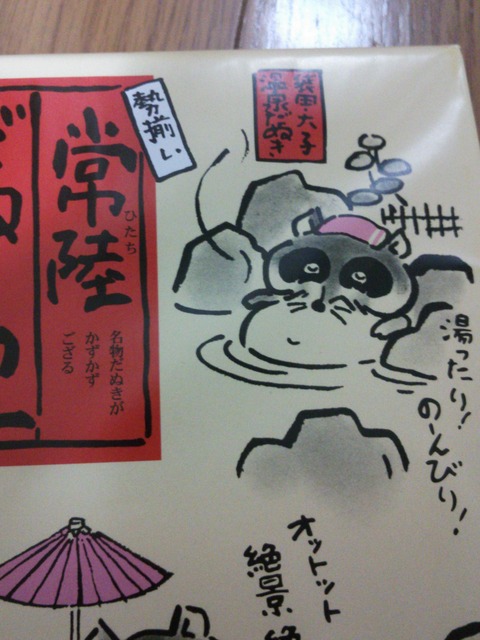 勢揃い
常陸
ひたち
名物だぬきが
かずかず
ござる
袋田・大子
温泉だぬき
湯ったり!
のーんびり!
オットット
絶景